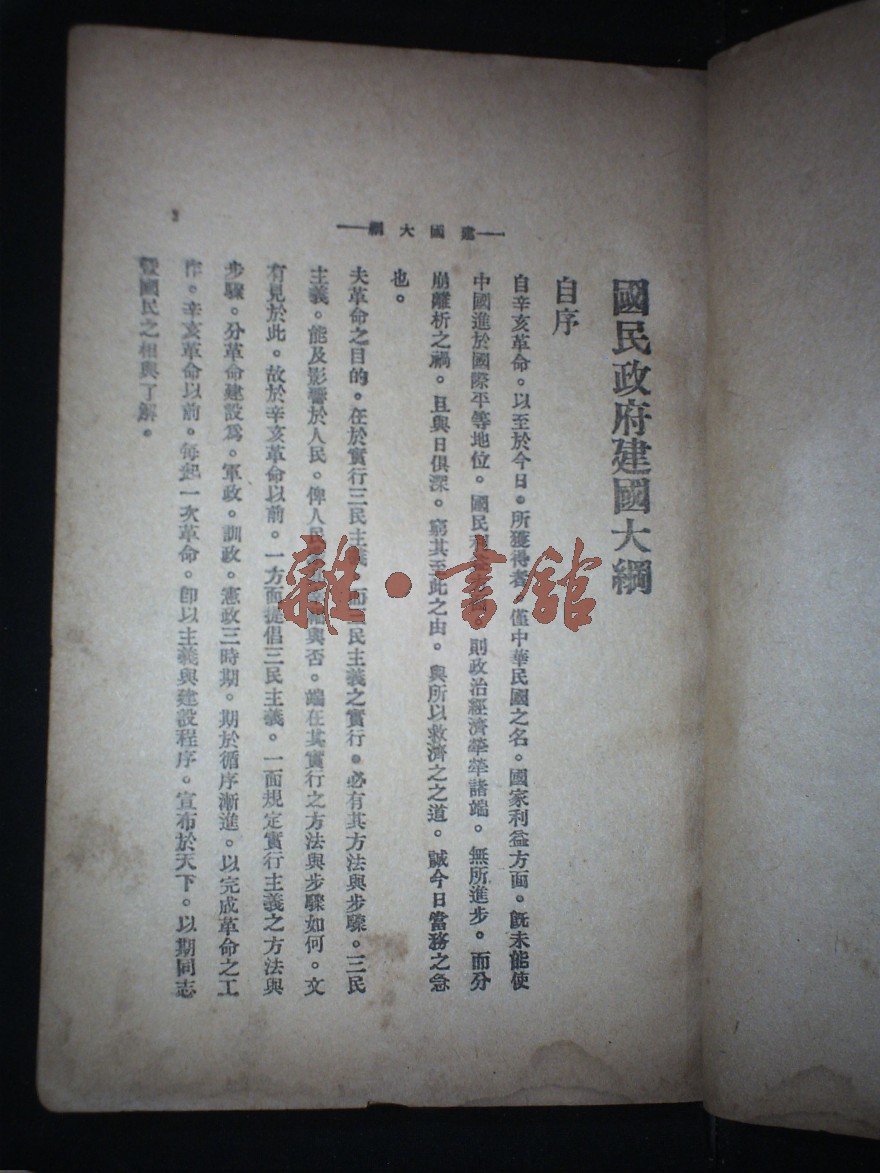 國民政府建國大綱
自序
自辛亥革命。以至於今日。所獲得者。僅中華民國之名。國家利益方面。既未能使
中國進於國際平等地位。國民利 則政治經濟犖犖諸端。無所進步。而分
崩離析之禍。且與日俱深。窮其至此之由。與所以救濟之之道。誠今日當務之急
也。
夫革命之目的。在於實行三民主義。而三民主義之實行。必有其方法與步驟。三民
主義。能及影響於人民。俾人民 與否。端在其實行之方法與步驟如何。文
有見於此。故於辛亥革命以前。一方面提倡三民主義。一面規定實行主義之方法與
步驟。分革命建設爲。軍政。訓政。憲政三時期。期於循序漸進。以完成革命之工
作。辛亥革命以前。每起一次革命。卽以主義與建設程序。宣布於天下。以期同志
暨國民之相與了解。
建國大綱
2
雜·書館